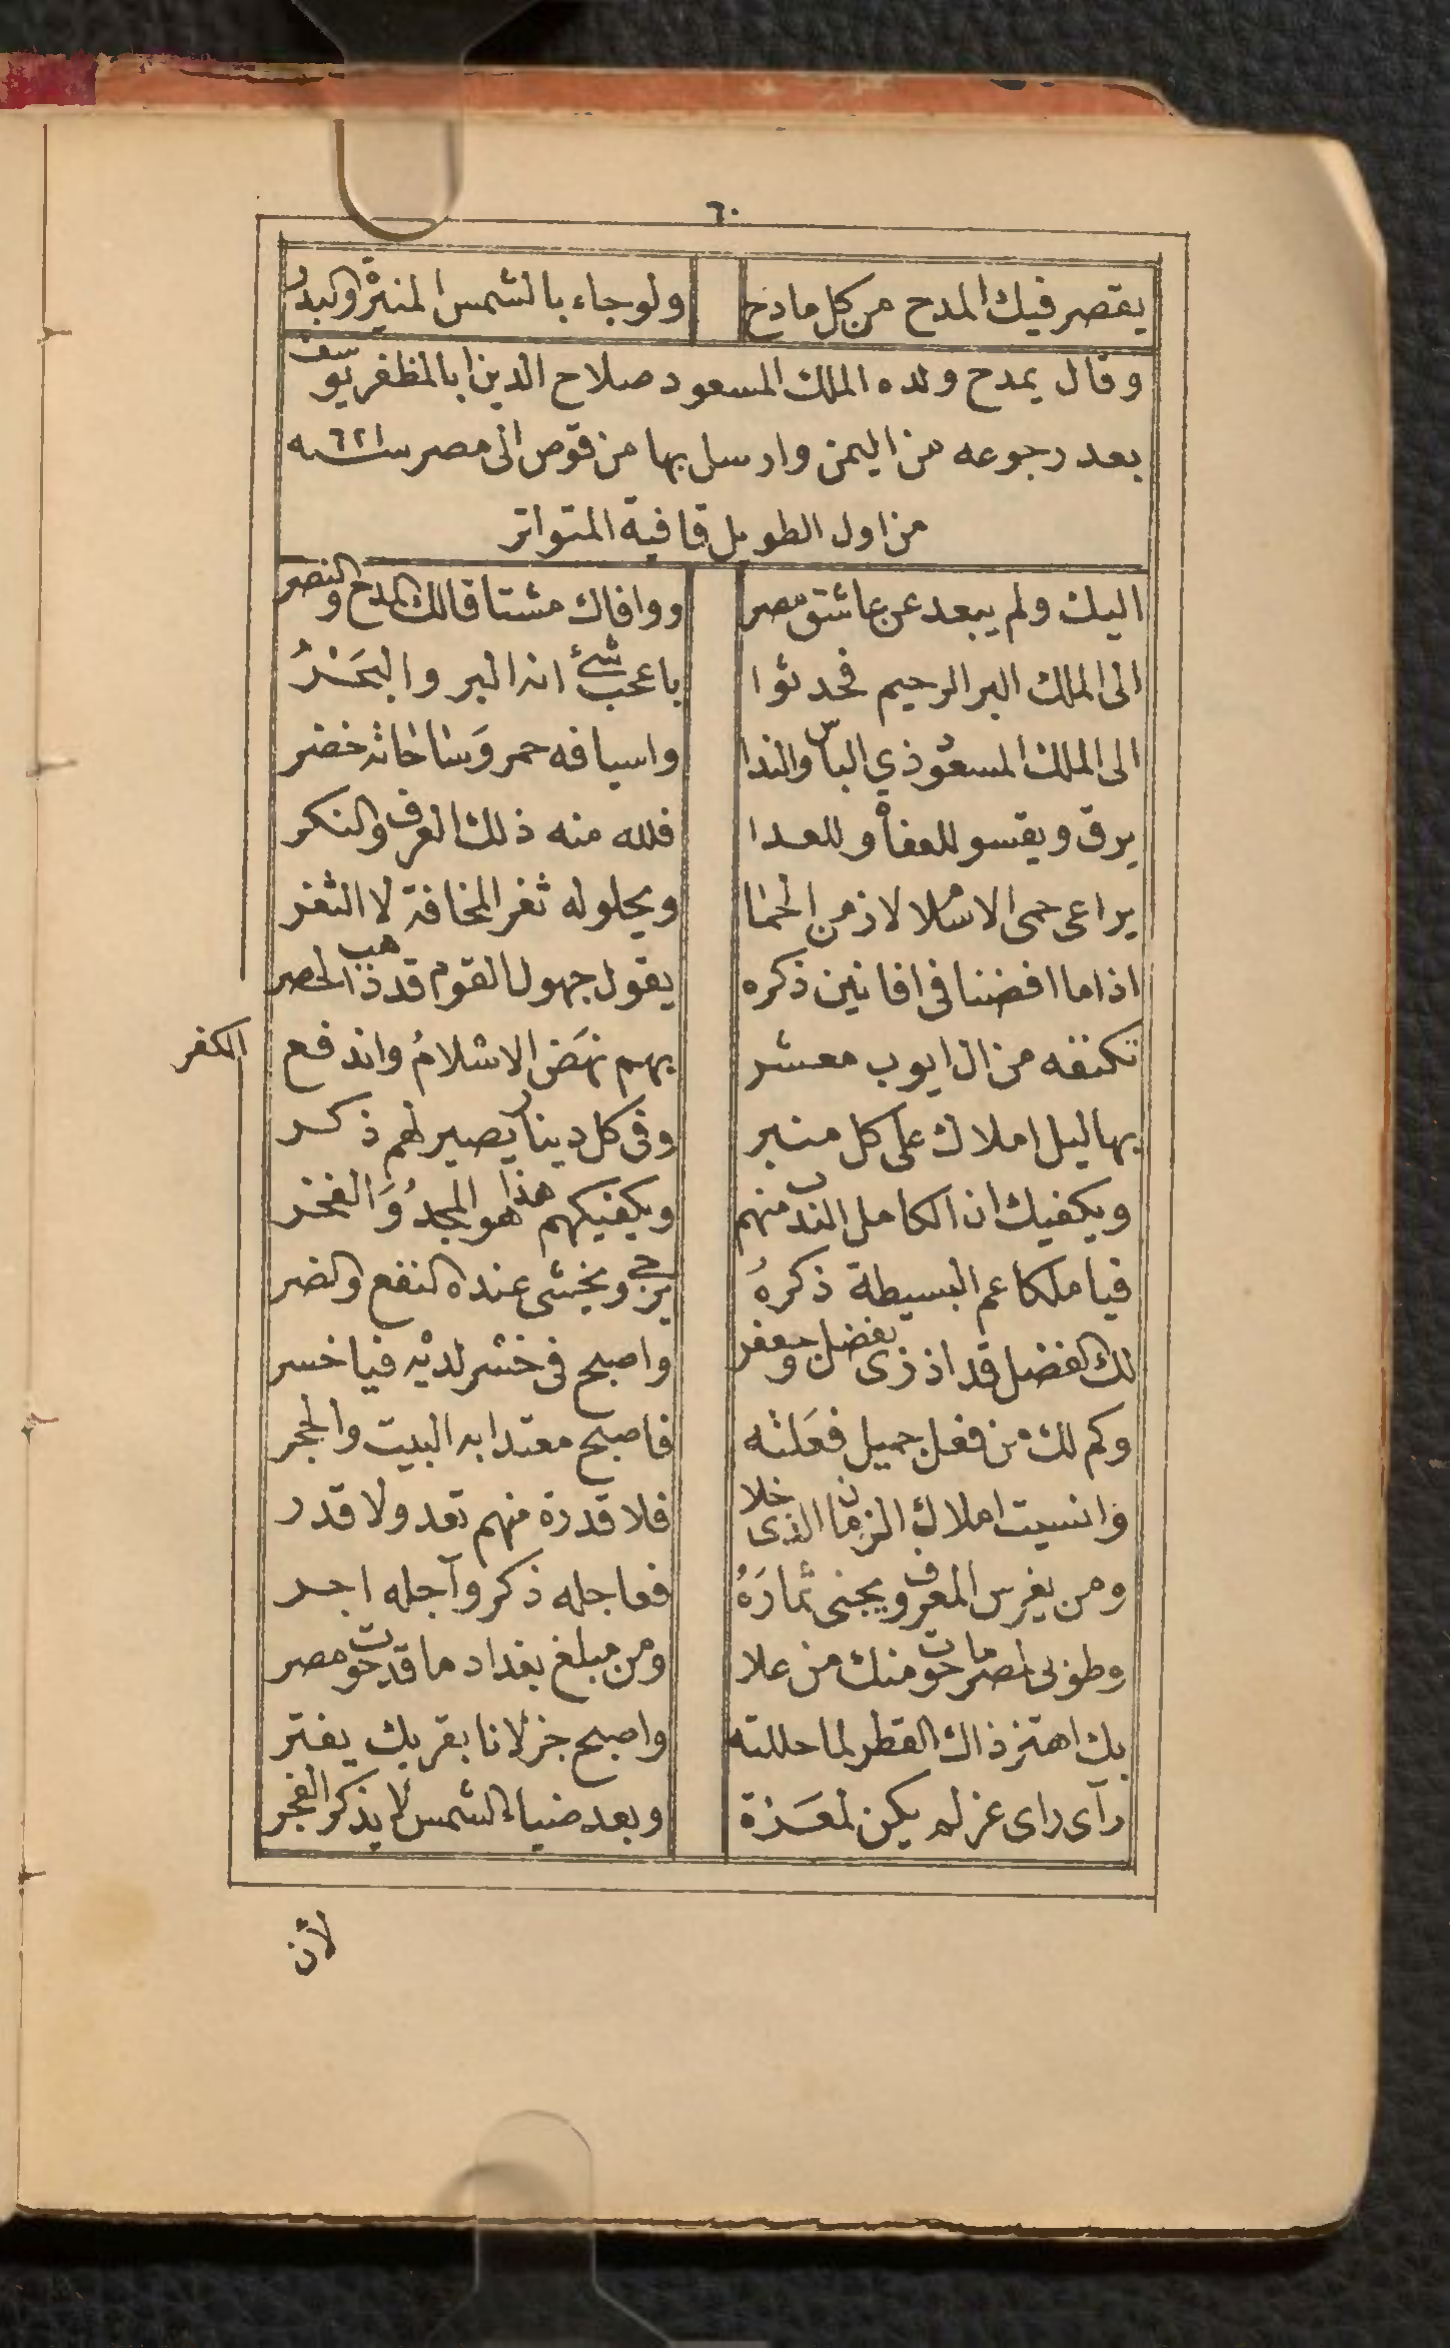 ٦٠
يقصر فيك المدح من كل مادح ولو جاء بالشمس المنيرة والبدر
وقال يمدح ولده الملك المسعود صلاح الدين ابا المظفر يوسف
بعد رجوعه من اليمن وارسل بها من قوص الى مصر سنة ٦٢١
من اول الطويل قافية المتواتر
اليك ولم يبعد عن عاشق مصر ووافاك مشتاقا لك المدح والنصر
الى الملك البر الرحيم فحدثوا باعجب شئ انه البر والبَحْرُ
الى الملك المسعود ذي الباس والندا واسيافه حمر وَساحاته خضر
يرق ويقسو للعفاة وللعدا فلله منه ذلك العرف والنكر
يراعى حمى الاسلام لا زمن الحما ويحلو له ثغر المخافة لا الثغر
اذا ما افضنا فى افانين ذكره يقول جهول القوم قد ذهب الحصر
تكنفه من ال ايوب معشر بهم نهَض الاسلامُ واندفع الكفر
بهاليل املاك على كل منبر وفى كل دينار يصير لهم ذكر
ويكفيك ان الكامل الندب منهم ويكفيكهم هذا هو المجدُ وَالفخر
فيا ملكا عم البسيطة ذكرهُ يرجى ويخشى عنده النفع والضر
لك الفضل قد اذرى بفضل وجعفر واصبح فى خسر لديْه فيا خسر
وكم لك من فعل جميل فعَلته فاصبح معتدا به البيت والحجر
وانسيت املاك الزمان الذى خلا فلا قدرة منهم تعد ولا قدر
ومن يغرس المعروف يجنى ثمارَهُ فعاجله ذكر وآجله اجر
وطوبى لمصر ما حوت منك من علا ومن مبلغ بغداد ما قد حوت مصر
بك اهتز ذاك القطر لما حللته واصبح جزلانا بقربك يفتر
رآى راى عز لم يكن لمعَزة وبعد ضياء الشمس لا يذكر الفجر
لأن